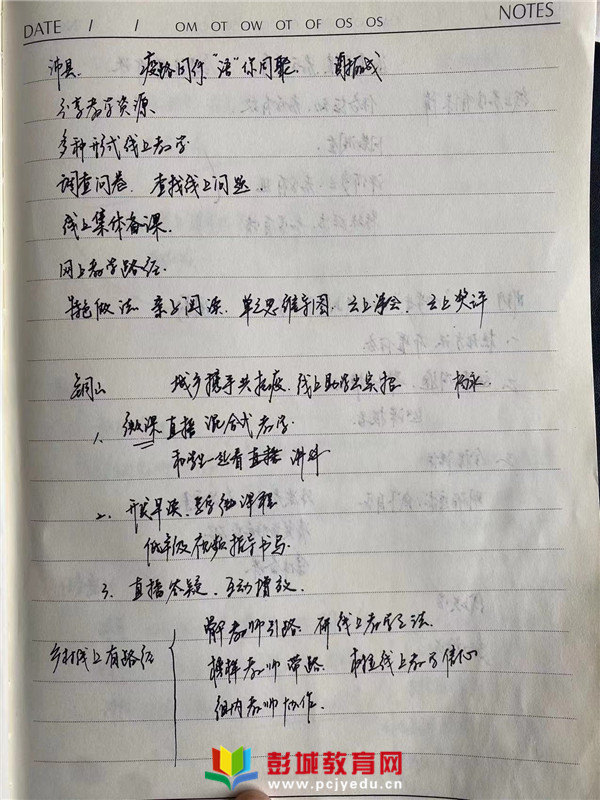 DATE / / OM OT OW OT OF OS OS NOTES
沛县. 疫路同行“语”你同聚.
分享教学资源.
多种形式线上教学
调查问卷. 查找线上问题.
线上集体备课.
网上教学路径.
特色做法 亲子阅读. 单元思维导图. 云上诵会. 云上奖评
铜山 城乡携手共抗疫. 线上助学出实招 杨永
1. 微课直播 混合式教学.
和学生一起看直播 讲解
2. 开或早读. 微课程
低年级视频指导书写.
3. 直播答疑. 互动增效.
乡村线上有路径
教师引路. 研线上教学之法.
榜样教师带路. 树线上教学信心
组内教师协作.
彭城教育网
www.pcjyedu.cn